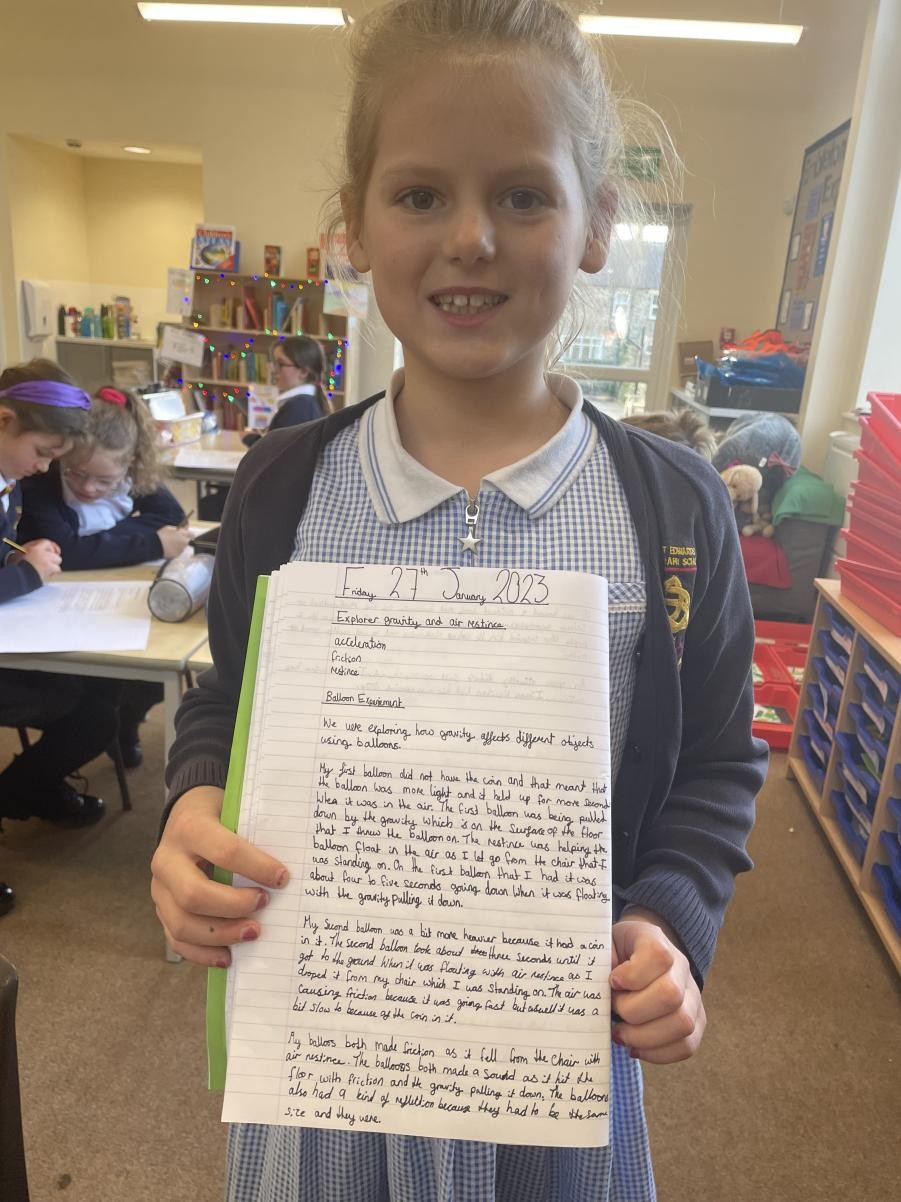 Friday 27th January 2023
Explorer gravity and air restince.
acceleration
friction
restince
Balloon Experiment
We were exploring how gravity affects different objects
using balloons.
My first balloon did not have the coin and that meant that
the balloon was more light and it held up for more second
when it was in the air. The first balloon was being pulled
down by the gravity which is on the surface of the floor
that I threw the balloon on. The restince was helping the
balloon float in the air as I let go from the chair that I
was standing on. On the first balloon that I had it was
about four to five seconds going down when it was floating
with the gravity pulling it down.
My Second balloon was a bit more heavier because it had a coin
in it. The second balloon took about three seconds until it
got to the ground when it was floating with air restince as I
droped it from my chair which I was standing on. The air was
causing friction because it was going fast but aswell it was a
bit slow to because of the coin in it.
My balloos both made friction as it fell from the chair with
air restince. The balloons both made a sound as it hit the
floor with friction and the gravity pulling it down. The balloons
also had a kind of reflettion because they had to be the same
size and they were.